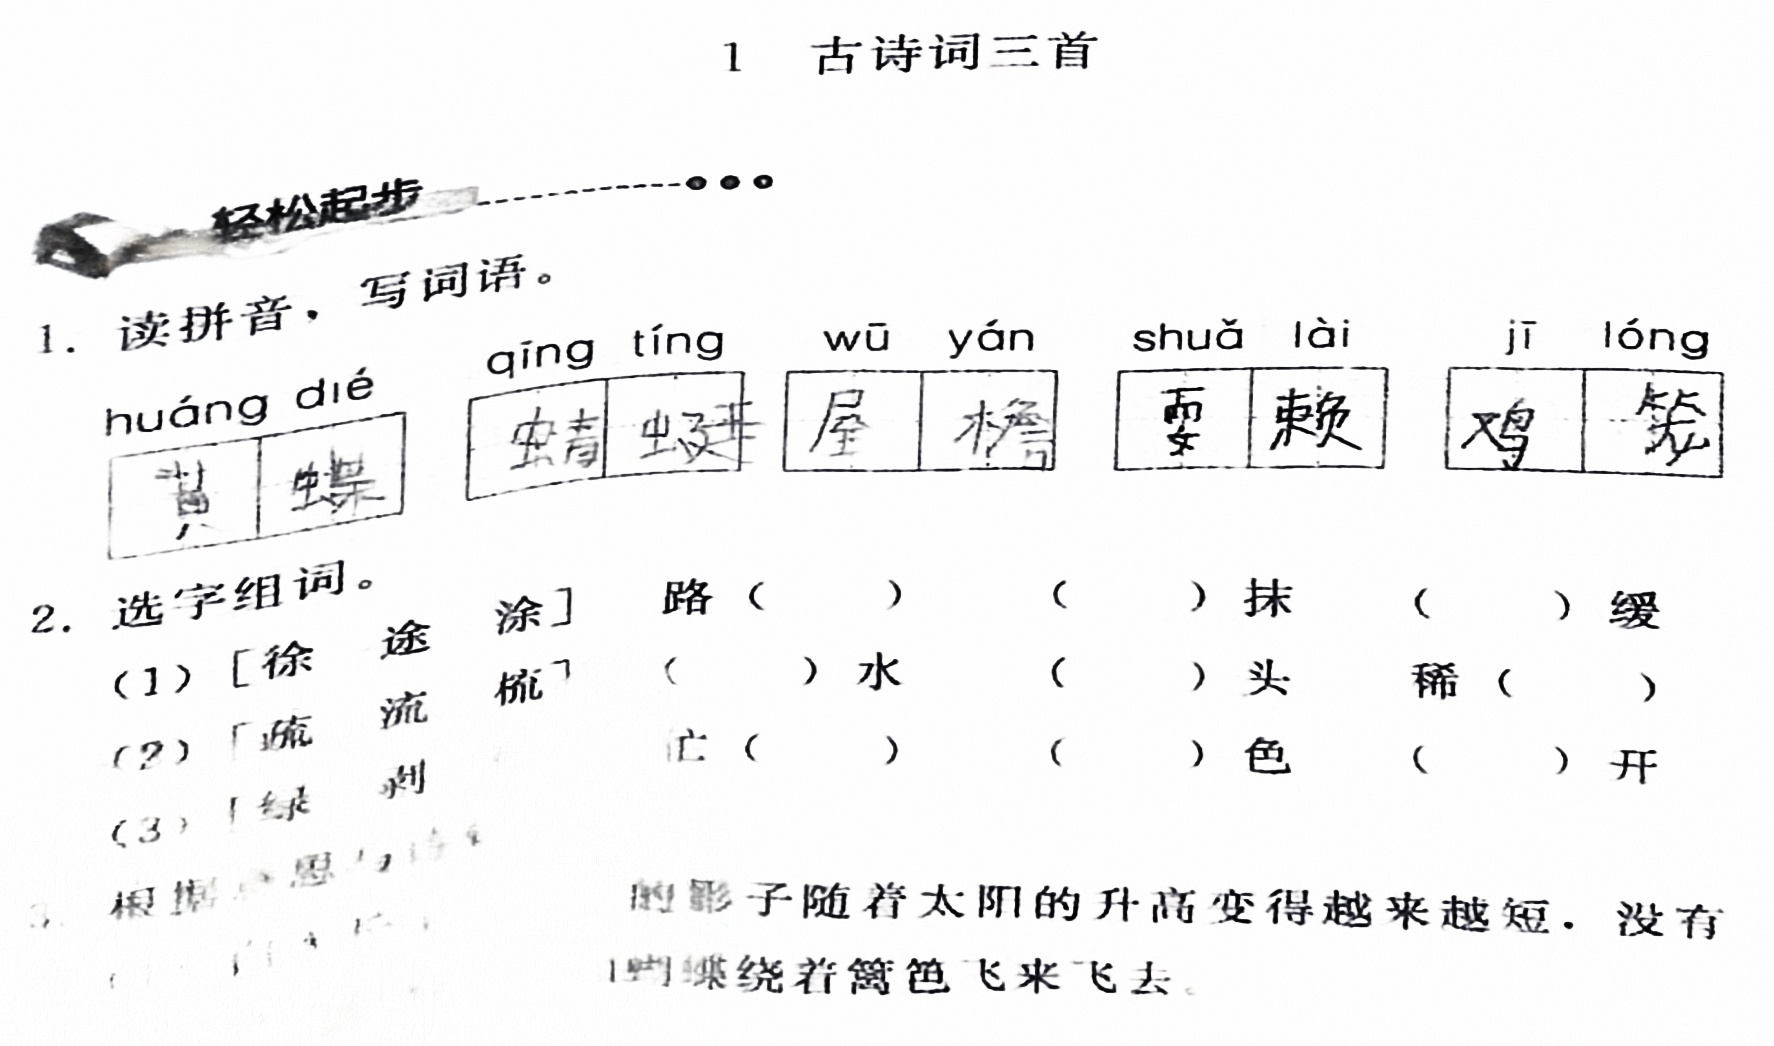 1 古诗词三首
轻松起步
1. 读拼音，写词语。
huáng dié qīng tíng wū yán shuǎ lài jī lóng
黄 蝶 蜻 蜓 屋 檐 耍 赖 鸡 笼
2. 选字组词。
(1) [徐 途 涂] 路( ) ( )抹 ( )缓
(2) [疏 流 梳] ( )水 ( )头 稀( )
(3) [绿 剥 忙( ) ( )色 ( )开
3. 根据 思
的影子随着太阳的升高变得越来越短. 没有
蝴蝶绕着篱笆飞来飞去。